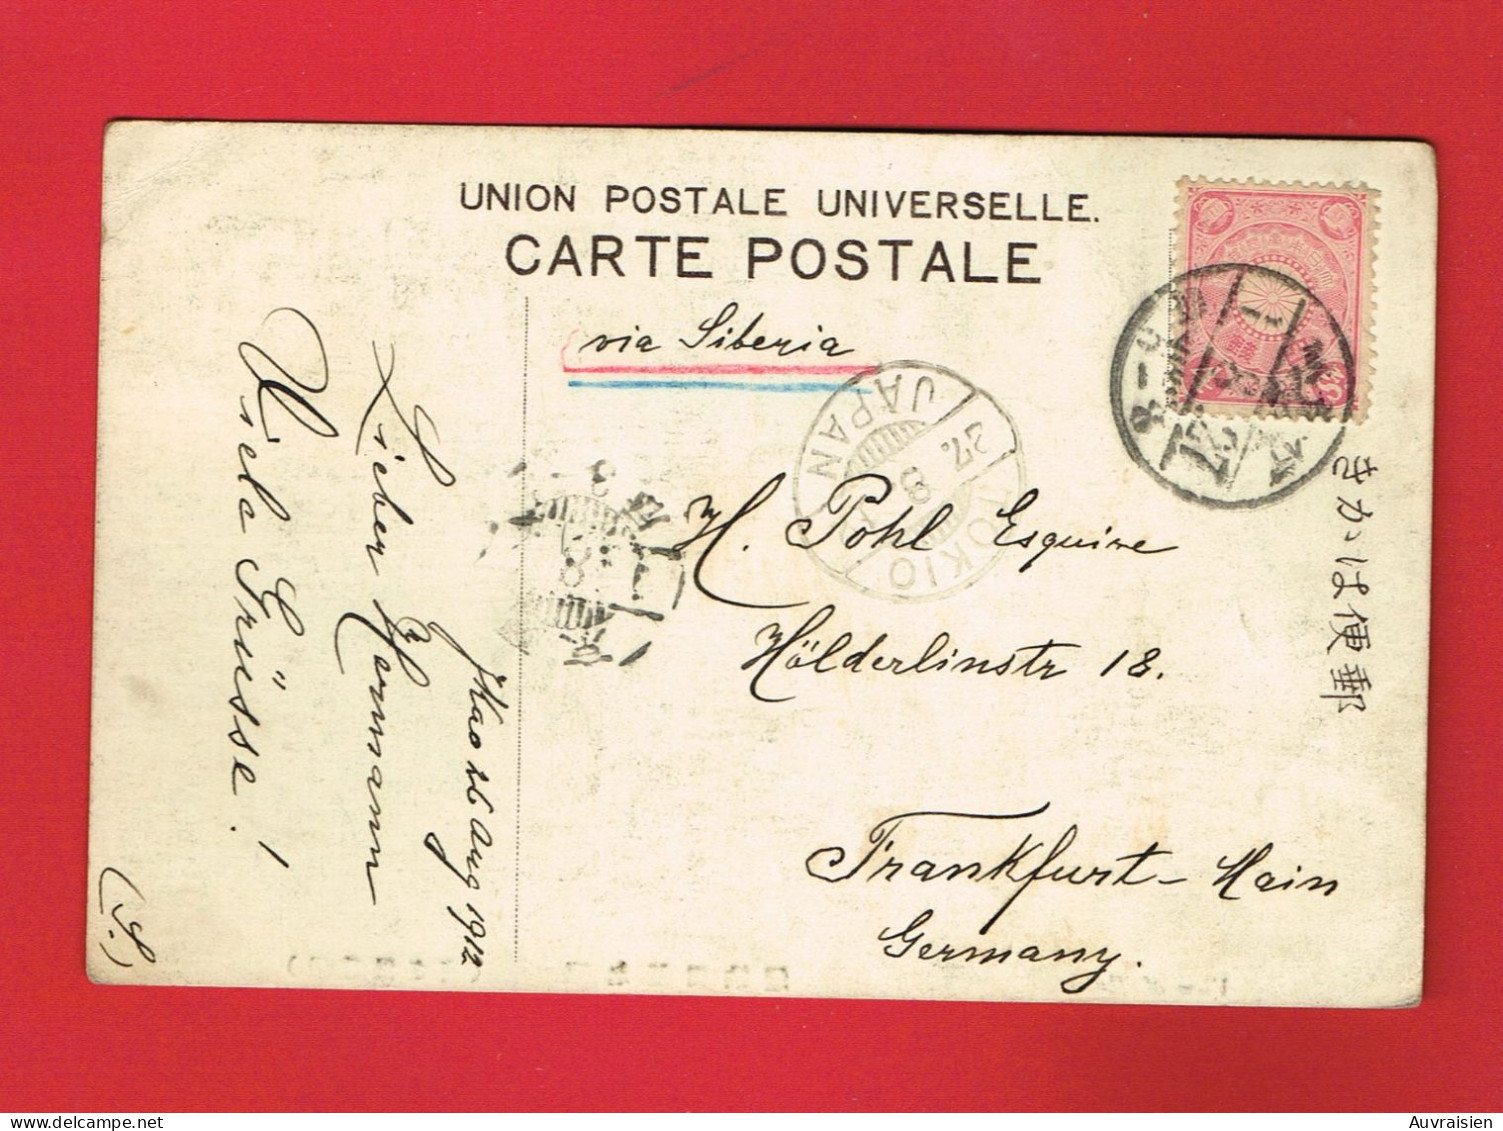 UNION POSTALE UNIVERSELLE.
CARTE POSTALE
via Siberia
TOKIO
27. 8
JAPAN
きかは便郵
H. Pohl Esquire
Hölderlinstr 18.
Frankfurt-Main
Germany.
26 Aug 1912
Lieber Hermann
Viele Grüsse!
(S.)
Auvraisien